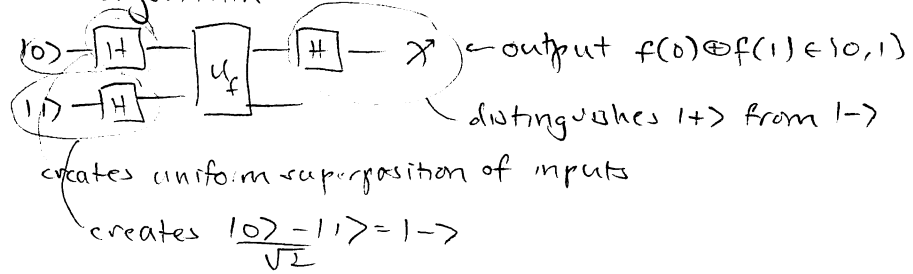 |0> H U_f H X output f(0)⊕f(1)∈{0,1}
|1> H
distinguishes |+> from |->
creates uniform superposition of inputs
creates |0>-|1>/√2 = |->